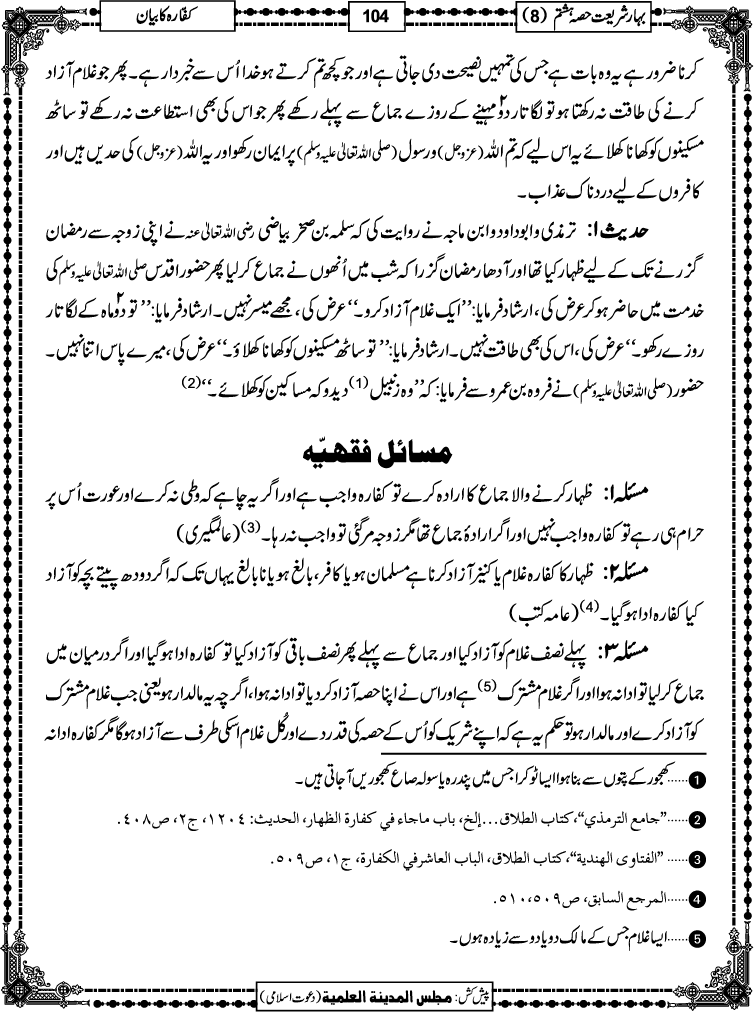 بہارِ شریعت حصہ ہشتم (8)
104
کفارہ کا بیان
کرنا ضرور ہے یہ وہ بات ہے جس کی تمہیں نصیحت دی جاتی ہے اور جو کچھ تم کرتے ہو خدا اُس سے خبردار ہے۔ پھر جو غلام آزاد
کرنے کی طاقت نہ رکھتا ہو تو لگاتار دو۲ مہینے کے روزے جماع سے پہلے رکھے پھر جو اس کی بھی استطاعت نہ رکھے تو ساٹھ
مسکینوں کو کھانا کھلائے یہ اس لیے کہ تم اللہ (عزوجل) و رسول (صلی اللہ تعالیٰ علیہ وسلم) پر ایمان رکھو اور یہ اللہ (عزوجل) کی حدیں ہیں اور
کافروں کے لیے دردناک عذاب۔
حدیث ۱: ترمذی و ابو داود و ابن ماجہ نے روایت کی کہ سلمہ بن صخر بیاضی رضی اللہ تعالیٰ عنہ نے اپنی زوجہ سے رمضان
گزرنے تک کے لیے ظہار کیا تھا اور آدھا رمضان گزرا کہ شب میں اُنھوں نے جماع کر لیا پھر حضور اقدس صلی اللہ تعالیٰ علیہ وسلم کی
خدمت میں حاضر ہو کر عرض کی، ارشاد فرمایا: ’’ایک غلام آزاد کرو۔‘‘ عرض کی، مجھے میسر نہیں۔ ارشاد فرمایا: ’’تو دو۲ ماہ کے لگاتار
روزے رکھو۔‘‘ عرض کی، اس کی بھی طاقت نہیں۔ ارشاد فرمایا: ’’تو ساٹھ مسکینوں کو کھانا کھلاؤ۔‘‘ عرض کی، میرے پاس اتنا نہیں۔
حضور (صلی اللہ تعالیٰ علیہ وسلم) نے فروہ بن عمرو سے فرمایا: کہ ’’وہ زنبیل (1) دیدو کہ مساکین کو کھلائے۔‘‘ (2)
مسائل فقہیّہ
مسئلہ ۱: ظہار کرنے والا جماع کا ارادہ کرے تو کفارہ واجب ہے اور اگر یہ چاہے کہ وطی نہ کرے اور عورت اُس پر
حرام ہی رہے تو کفارہ واجب نہیں اور اگر ارادۂ جماع تھا مگر زوجہ مر گئی تو واجب نہ رہا۔(3) (عالمگیری)
مسئلہ ۲: ظہار کا کفارہ غلام یا کنیز آزاد کرنا ہے مسلمان ہو یا کافر، بالغ ہو یا نابالغ یہاں تک کہ اگر دودھ پیتے بچہ کو آزاد
کیا کفارہ ادا ہوگیا۔(4) (عامہ کتب)
مسئلہ ۳: پہلے نصف غلام کو آزاد کیا اور جماع سے پہلے پھر نصف باقی کو آزاد کیا تو کفارہ ادا ہوگیا اور اگر درمیان میں
جماع کر لیا تو ادا نہ ہوا اور اگر غلام مشترک (5) ہے اور اس نے اپنا حصہ آزاد کر دیا تو ادا نہ ہوا، اگرچہ یہ مالدار ہو یعنی جب غلام مشترک
کو آزاد کرے اور مالدار ہو تو حکم یہ ہے کہ اپنے شریک کو اُس کے حصہ کی قدر دے اور کُل غلام اسکی طرف سے آزاد ہوگا مگر کفارہ ادا نہ
1 ...... کھجور کے پتوں سے بنا ہوا ایسا ٹوکرا جس میں پندرہ یا سولہ صاع کھجوریں آجاتی ہیں۔
2 ...... ’’جامع الترمذي‘‘، کتاب الطلاق... إلخ، باب ماجاء في کفارة الظهار، الحدیث: ١٢٠٤، ج٢، ص٤٠٨.
3 ...... ’’الفتاوی الهندیة‘‘، کتاب الطلاق، الباب العاشر في الکفارة، ج١، ص٥٠٩.
4 ...... المرجع السابق، ص٥٠٩،٥١٠.
5 ...... ایسا غلام جس کے مالک دو یا دو سے زیادہ ہوں۔
پیش کش: مجلس المدینة العلمیة (دعوت اسلامی)